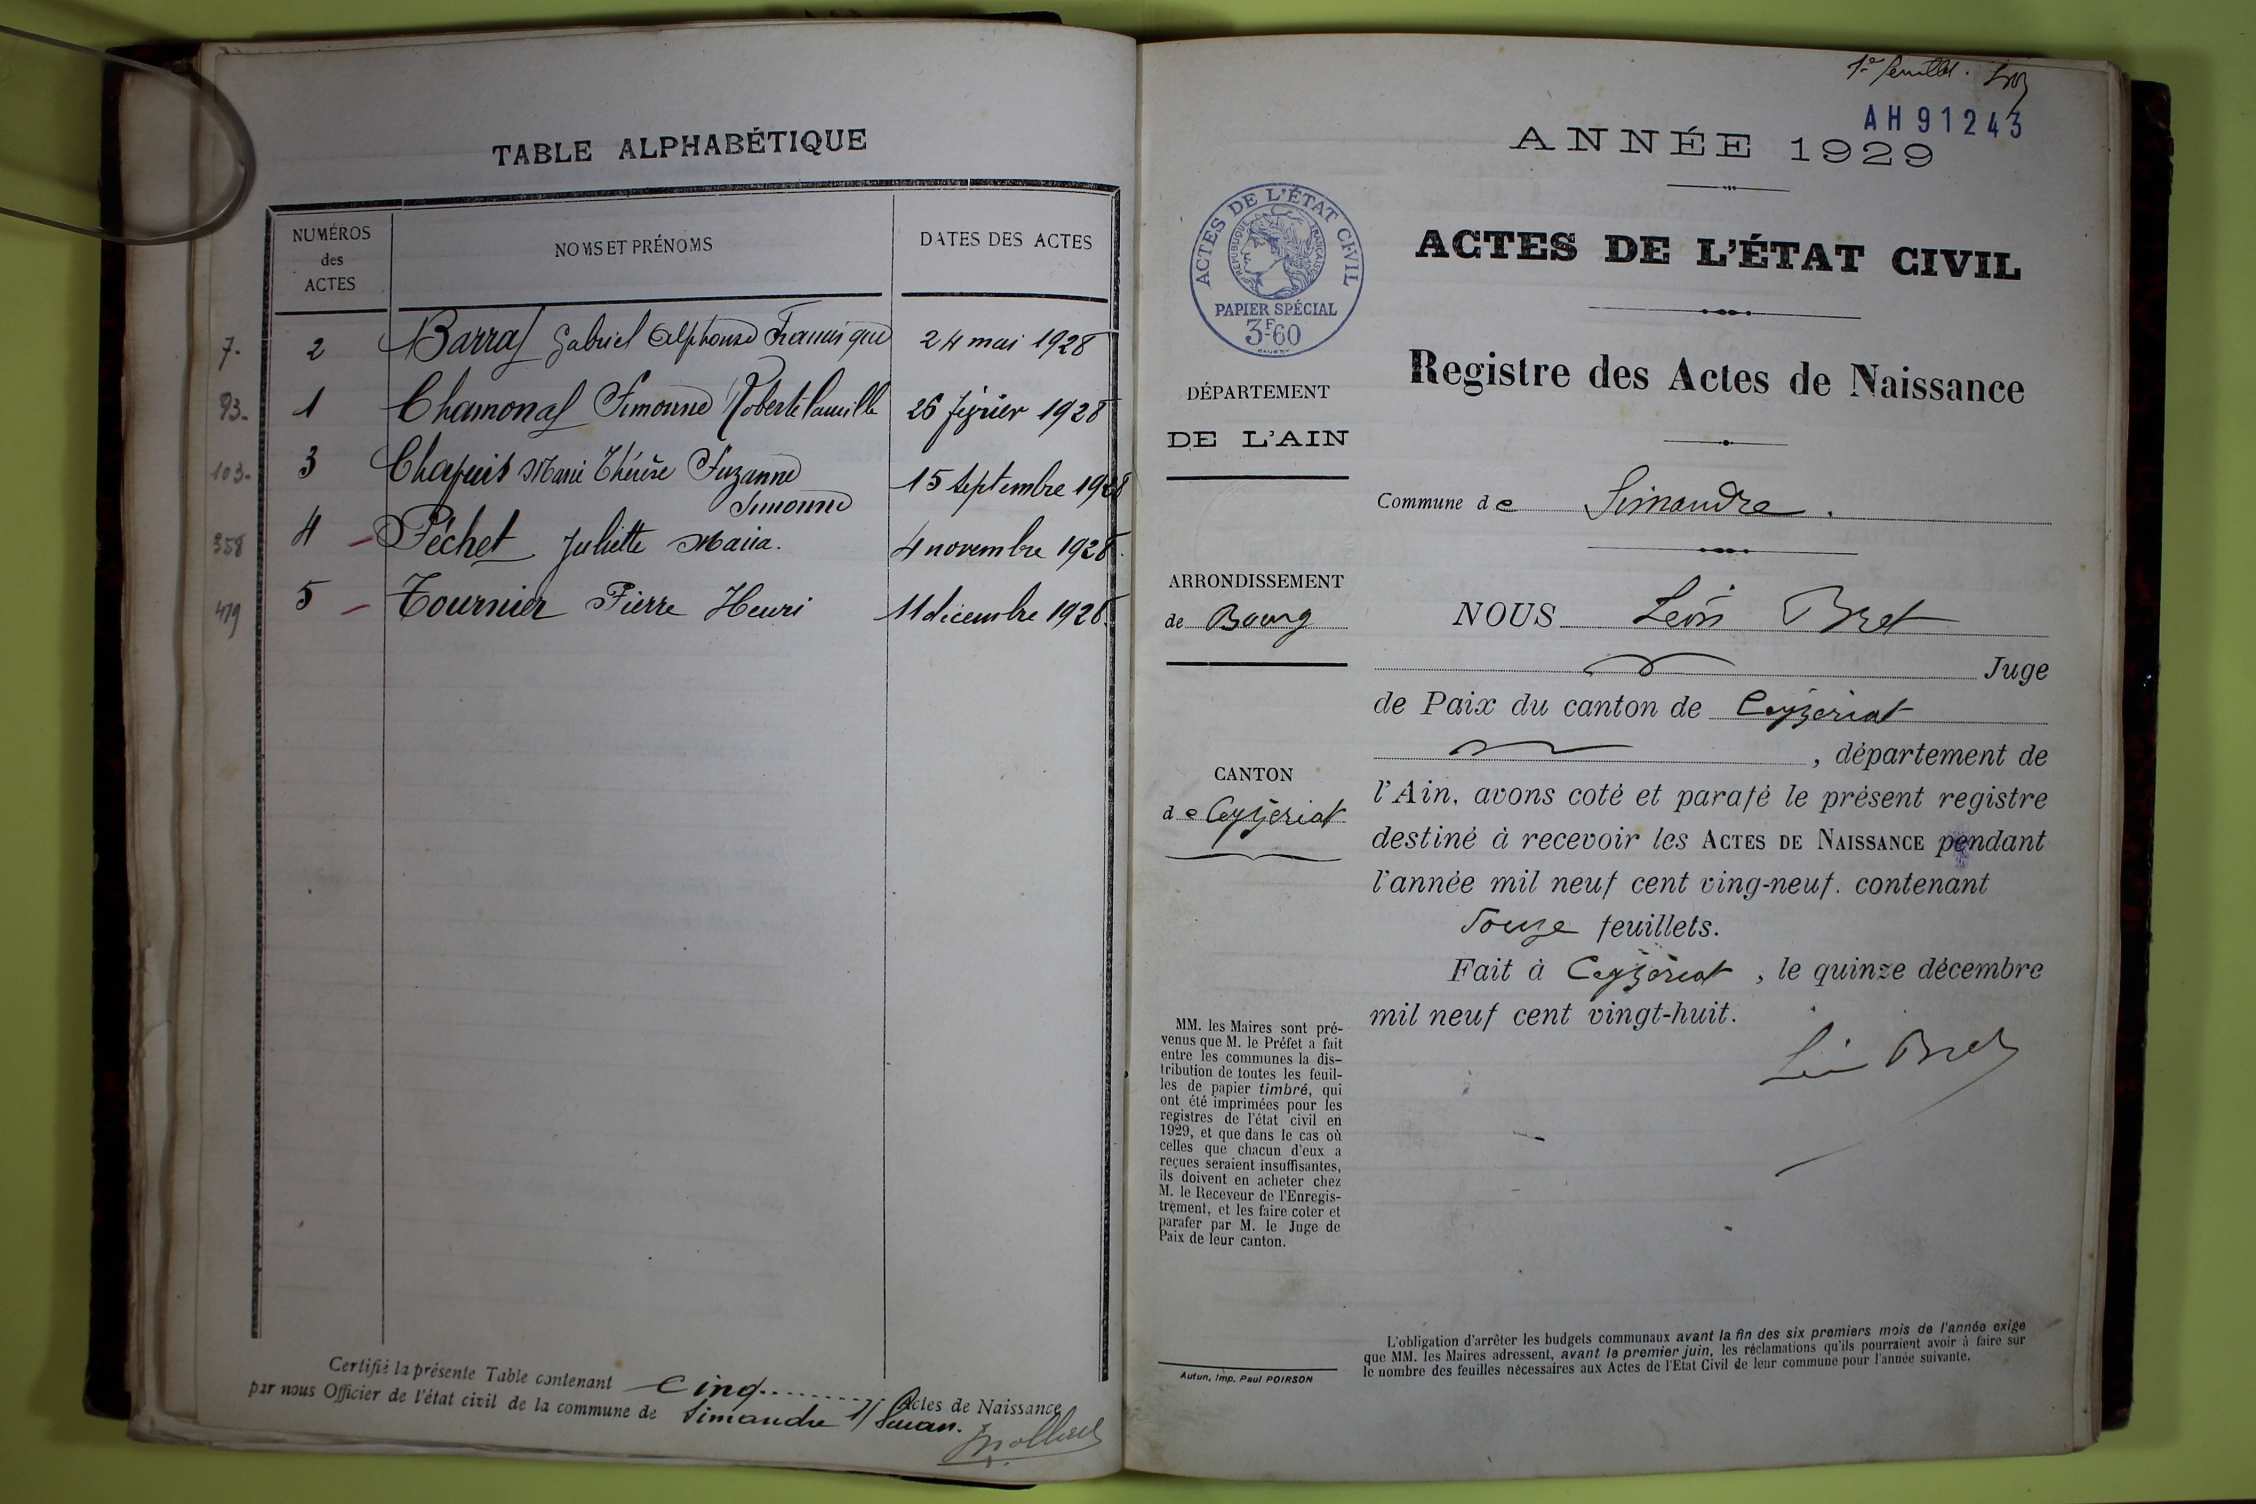 TABLE ALPHABÉTIQUE
NUMÉROS
des
ACTES
NOMS ET PRÉNOMS
DATES DES ACTES
7. 2 Barras Gabriel Alphonse Francisque 24 mai 1928
93. 1 Chamonal Simonne Roberte Camille 26 février 1928
103. 3 Chapuis Marie Thérèse Suzanne
Simonne 15 septembre 1928
358 4 Péchet Juliette Maria. 4 novembre 1928.
419 5 Tournier Pierre Henri 11 décembre 1928.
Certifié la présente Table contenant cinq Actes de Naissance
par nous Officier de l'état civil de la commune de Simandre s/ Suran.
1er feuillet.
AH 91243
ANNÉE 1929
ACTES DE L'ÉTAT CIVIL
RÉPUBLIQUE FRANÇAISE
PAPIER SPÉCIAL
3F60
ACTES DE L'ÉTAT CIVIL
Registre des Actes de Naissance
DÉPARTEMENT
DE L'AIN
Commune de Simandre.
ARRONDISSEMENT
de Bourg
CANTON
de Ceyzériat
NOUS Léon Bret
Juge
de Paix du canton de Ceyzériat
, département de
l'Ain, avons coté et parafé le présent registre
destiné à recevoir les ACTES DE NAISSANCE pendant
l'année mil neuf cent ving-neuf. contenant
douze feuillets.
Fait à Ceyzériat, le quinze décembre
mil neuf cent vingt-huit.
Léon Bret
MM. les Maires sont pré-
venus que M. le Préfet a fait
entre les communes la dis-
tribution de toutes les feuil-
les de papier timbré, qui
ont été imprimées pour les
registres de l'état civil en
1929, et que dans le cas où
celles que chacun d'eux a
reçues seraient insuffisantes,
ils doivent en acheter chez
M. le Receveur de l'Enregis-
trement, et les faire coter et
parafer par M. le Juge de
Paix de leur canton.
Autun, Imp. Paul POIRSON
L'obligation d'arrêter les budgets communaux avant la fin des six premiers mois de l'année exige
que MM. les Maires adressent, avant le premier juin, les réclamations qu'ils pourraient avoir à faire sur
le nombre des feuilles nécessaires aux Actes de l'Etat Civil de leur commune pour l'année suivante.